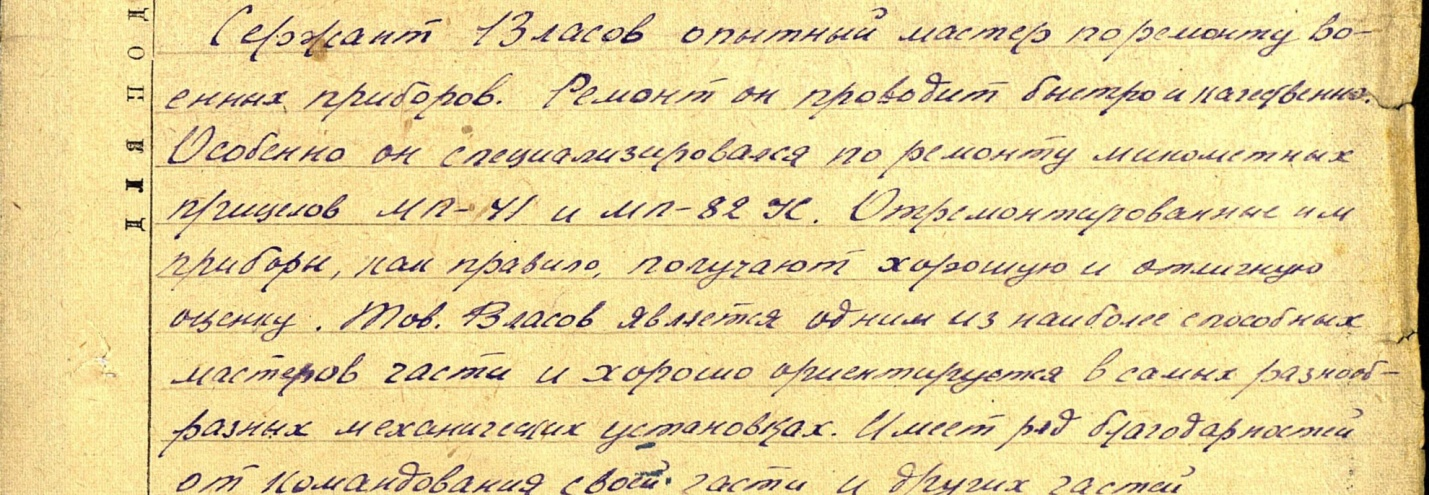 Сержант Власов опытный мастер по ремонту во-
енных приборов. Ремонт он проводит быстро и качественно.
Особенно он специализировался по ремонту минометных
прицелов МП-41 и МП-82 К. Отремонтированные им
приборы, как правило, получают хорошую и отличную
оценку. Тов. Власов является одним из наиболее способных
мастеров части и хорошо ориентируется в самых разнооб-
разных механических установках. Имеет ряд благодарностей
от командования своей части и других частей